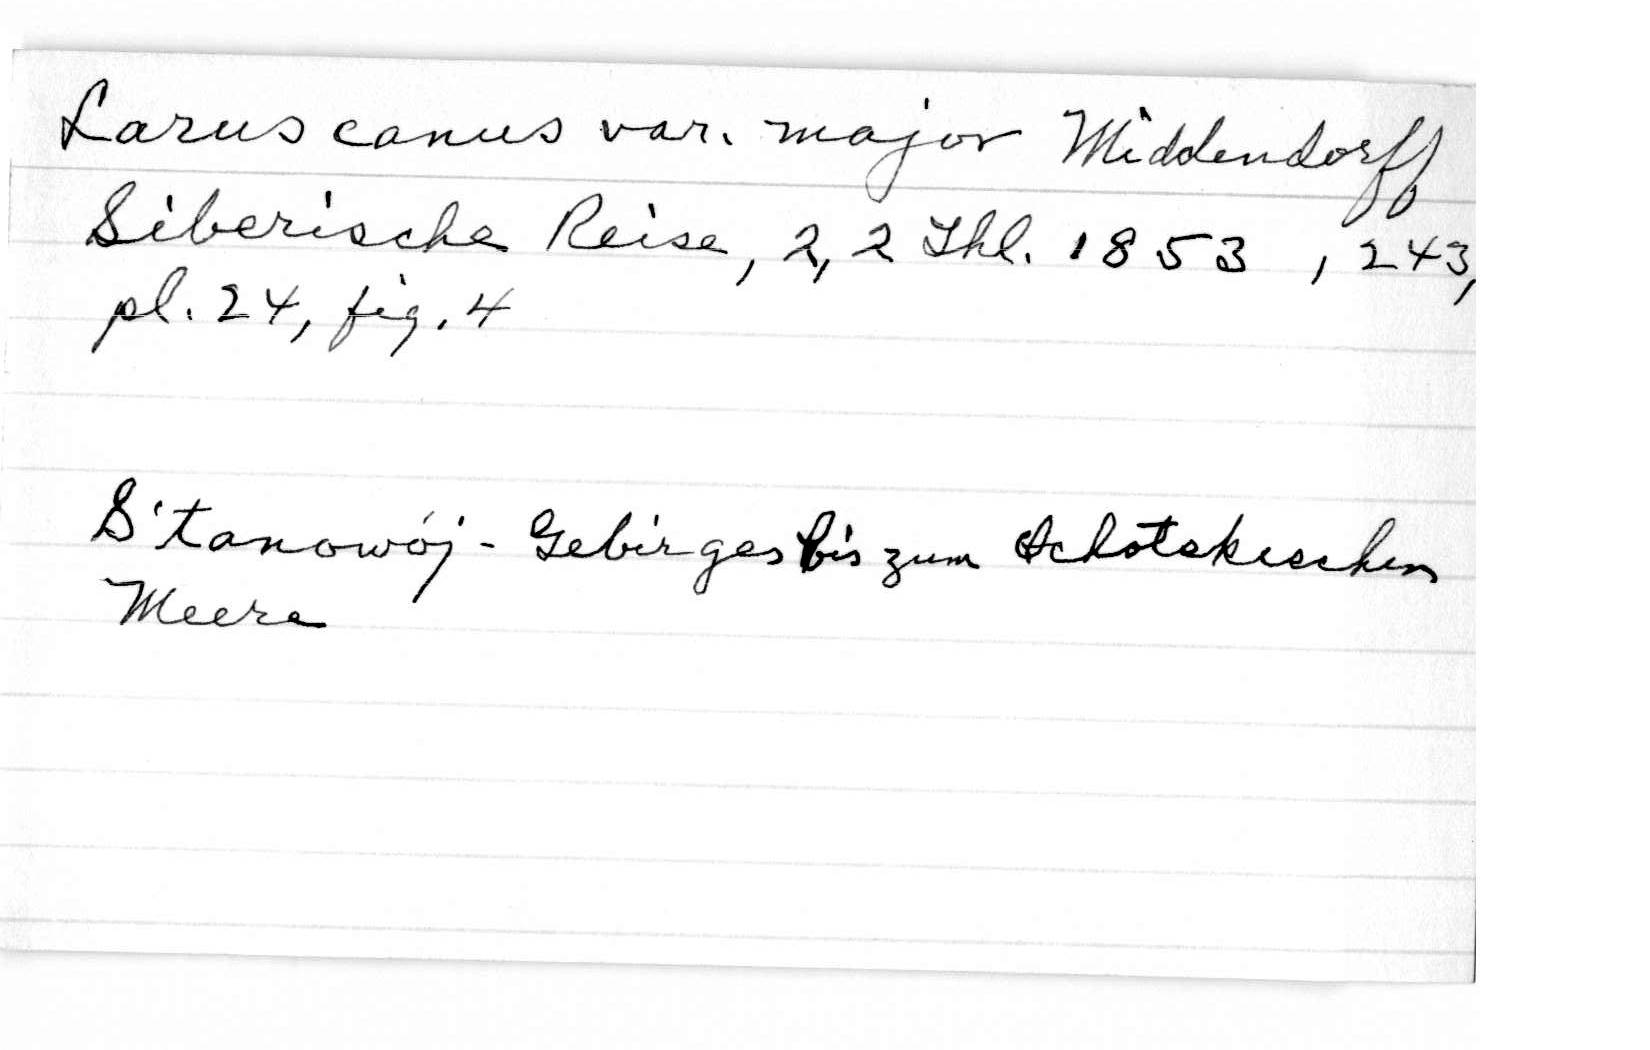 Larus canus var. major Middendorff
Siberische Reise, 2, 2 Thl. 1853, 243,
pl. 24, fig. 4
S'tanowój-Gebirges bis zum Ochotskischen
Meere